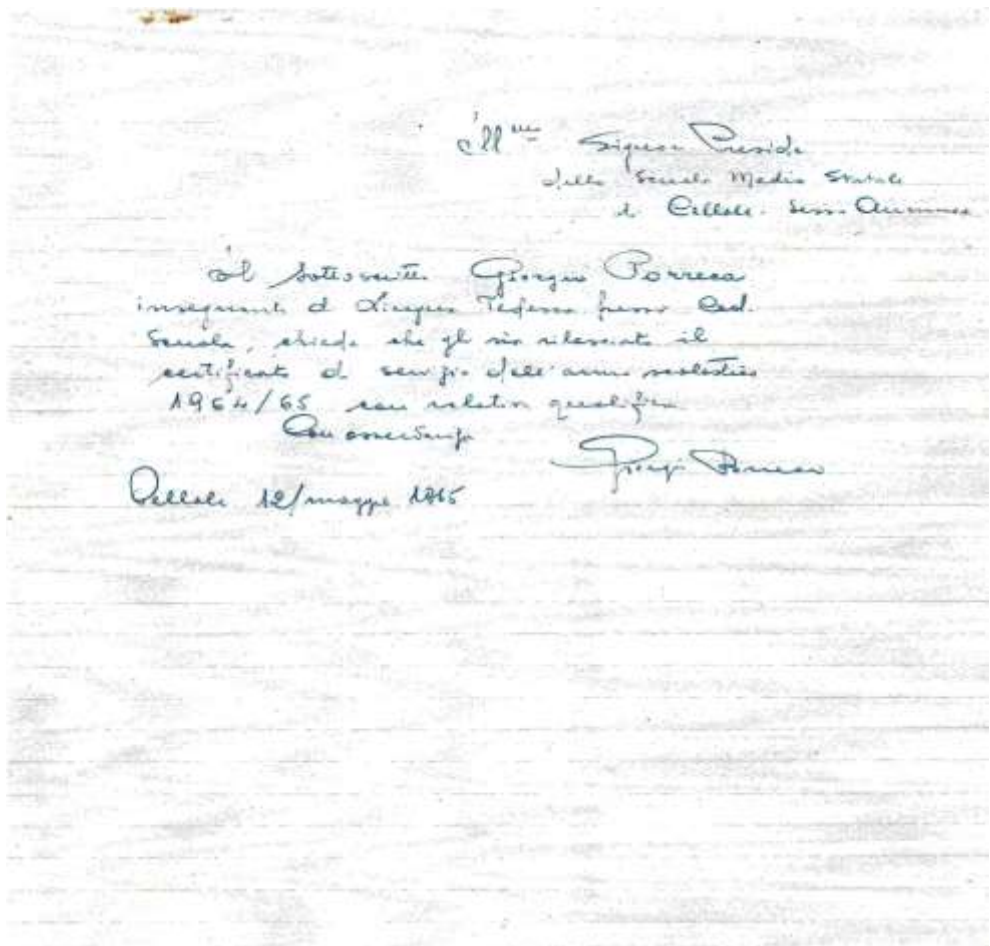 Ill.mo Signor Preside
della Scuola Media Statale
di Cellole. Sessa Aurunca
Il sottoscritto Giorgio Porreca
insegnante di Lingua Tedesca presso Cod.
Scuola, chiede che gli sia rilasciato il
certificato di servizio dell'anno scolastico
1964/65 con relativa qualifica
Con osservanza
Giorgio Porreca
Cellole 12/maggio 1965